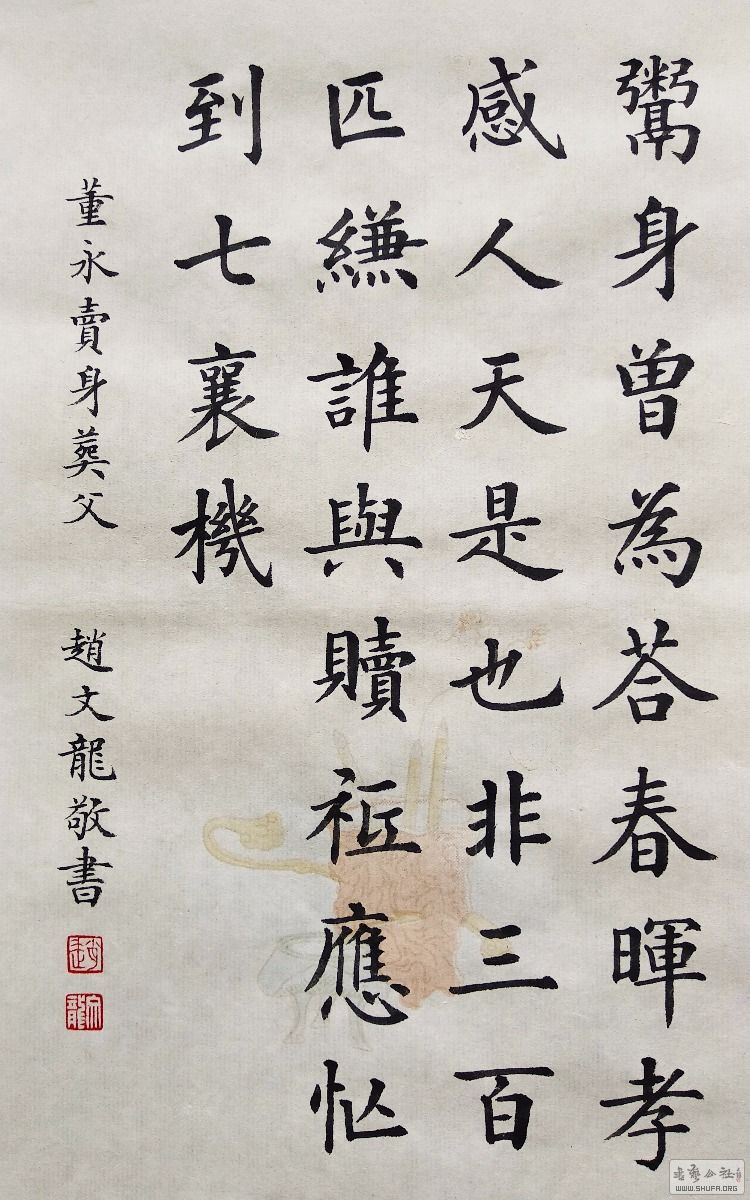 鬻身曾為荅春暉孝
感人天是也非三百
匹縑誰與贖祇應忙
到七襄機
董永賣身葬父 趙文龍敬書
趙
文龍
書藝公社
WWW.SHUFA.ORG